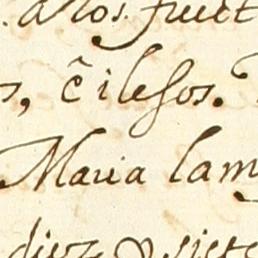 . a los. fuert
s, c̃ ilesos.
Maria lam
diez & siete